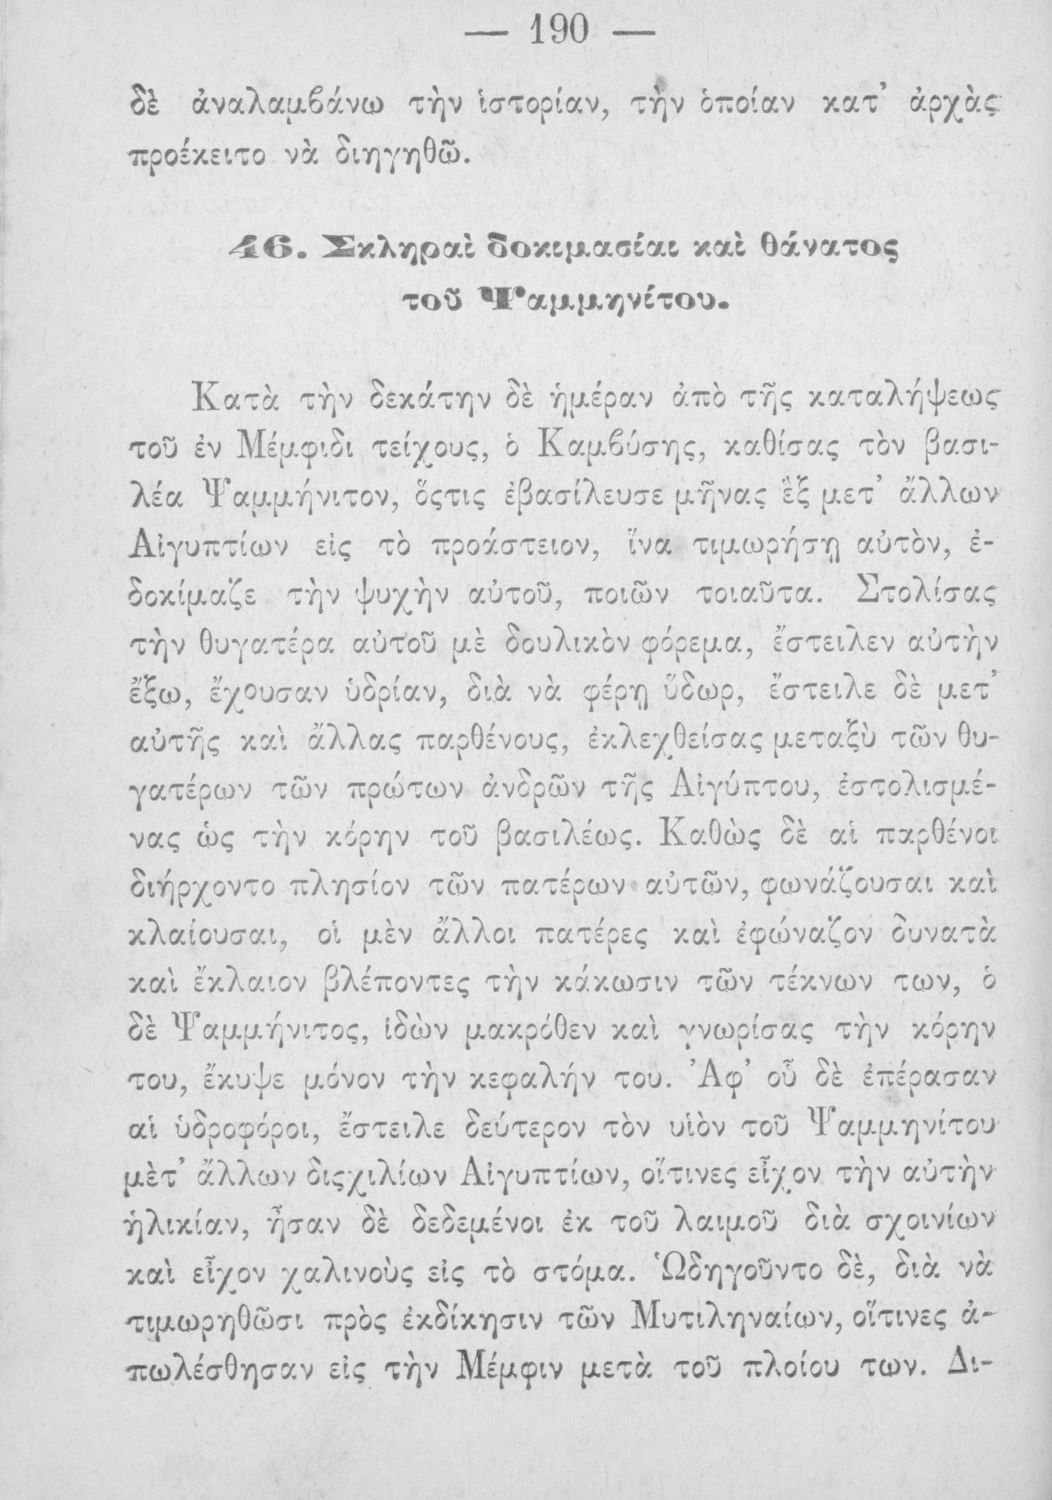 — 190 —
δὲ ἀναλαμβάνω τὴν ἱστορίαν, τὴν ὁποίαν κατ' ἀρχὰς
προέκειτο νὰ διηγηθῶ.
46. Σκληραὶ δοκιμασίαι καὶ θάνατος
τοῦ Ψαμμηνίτου.
Κατὰ τὴν δεκάτην δὲ ἡμέραν ἀπὸ τῆς καταλήψεως
τοῦ ἐν Μέμφιδι τείχους, ὁ Καμβύσης, καθίσας τὸν βασι-
λέα Ψαμμήνιτον, ὅςτις ἐβασίλευσε μῆνας ἓξ μετ' ἄλλων
Αἰγυπτίων εἰς τὸ προάστειον, ἵνα τιμωρήσῃ αὐτὸν, ἐ-
δοκίμαζε τὴν ψυχὴν αὐτοῦ, ποιῶν τοιαῦτα. Στολίσας
τὴν θυγατέρα αὐτοῦ μὲ δουλικὸν φόρεμα, ἔστειλεν αὐτὴν
ἔξω, ἔχουσαν ὑδρίαν, διὰ νὰ φέρῃ ὕδωρ, ἔστειλε δὲ μετ'
αὐτῆς καὶ ἄλλας παρθένους, ἐκλεχθείσας μεταξὺ τῶν θυ-
γατέρων τῶν πρώτων ἀνδρῶν τῆς Αἰγύπτου, ἐστολισμέ-
νας ὡς τὴν κόρην τοῦ βασιλέως. Καθὼς δὲ αἱ παρθένοι
διήρχοντο πλησίον τῶν πατέρων αὐτῶν, φωνάζουσαι καὶ
κλαίουσαι, οἱ μὲν ἄλλοι πατέρες καὶ ἐφώναζον δυνατὰ
καὶ ἔκλαιον βλέποντες τὴν κάκωσιν τῶν τέκνων των, ὁ
δὲ Ψαμμήνιτος, ἰδὼν μακρόθεν καὶ γνωρίσας τὴν κόρην
του, ἔκυψε μόνον τὴν κεφαλήν του. Ἀφ' οὗ δὲ ἐπέρασαν
αἱ ὑδροφόροι, ἔστειλε δεύτερον τὸν υἱὸν τοῦ Ψαμμηνίτου
μὲτ' ἄλλων διςχιλίων Αἰγυπτίων, οἵτινες εἶχον τὴν αὐτὴν
ἡλικίαν, ἦσαν δὲ δεδεμένοι ἐκ τοῦ λαιμοῦ διὰ σχοινίων
καὶ εἶχον χαλινοὺς εἰς τὸ στόμα. Ὡδηγοῦντο δὲ, διὰ νὰ
τιμωρηθῶσι πρὸς ἐκδίκησιν τῶν Μυτιληναίων, οἵτινες ἀ-
πωλέσθησαν εἰς τὴν Μέμφιν μετὰ τοῦ πλοίου των. Δι-